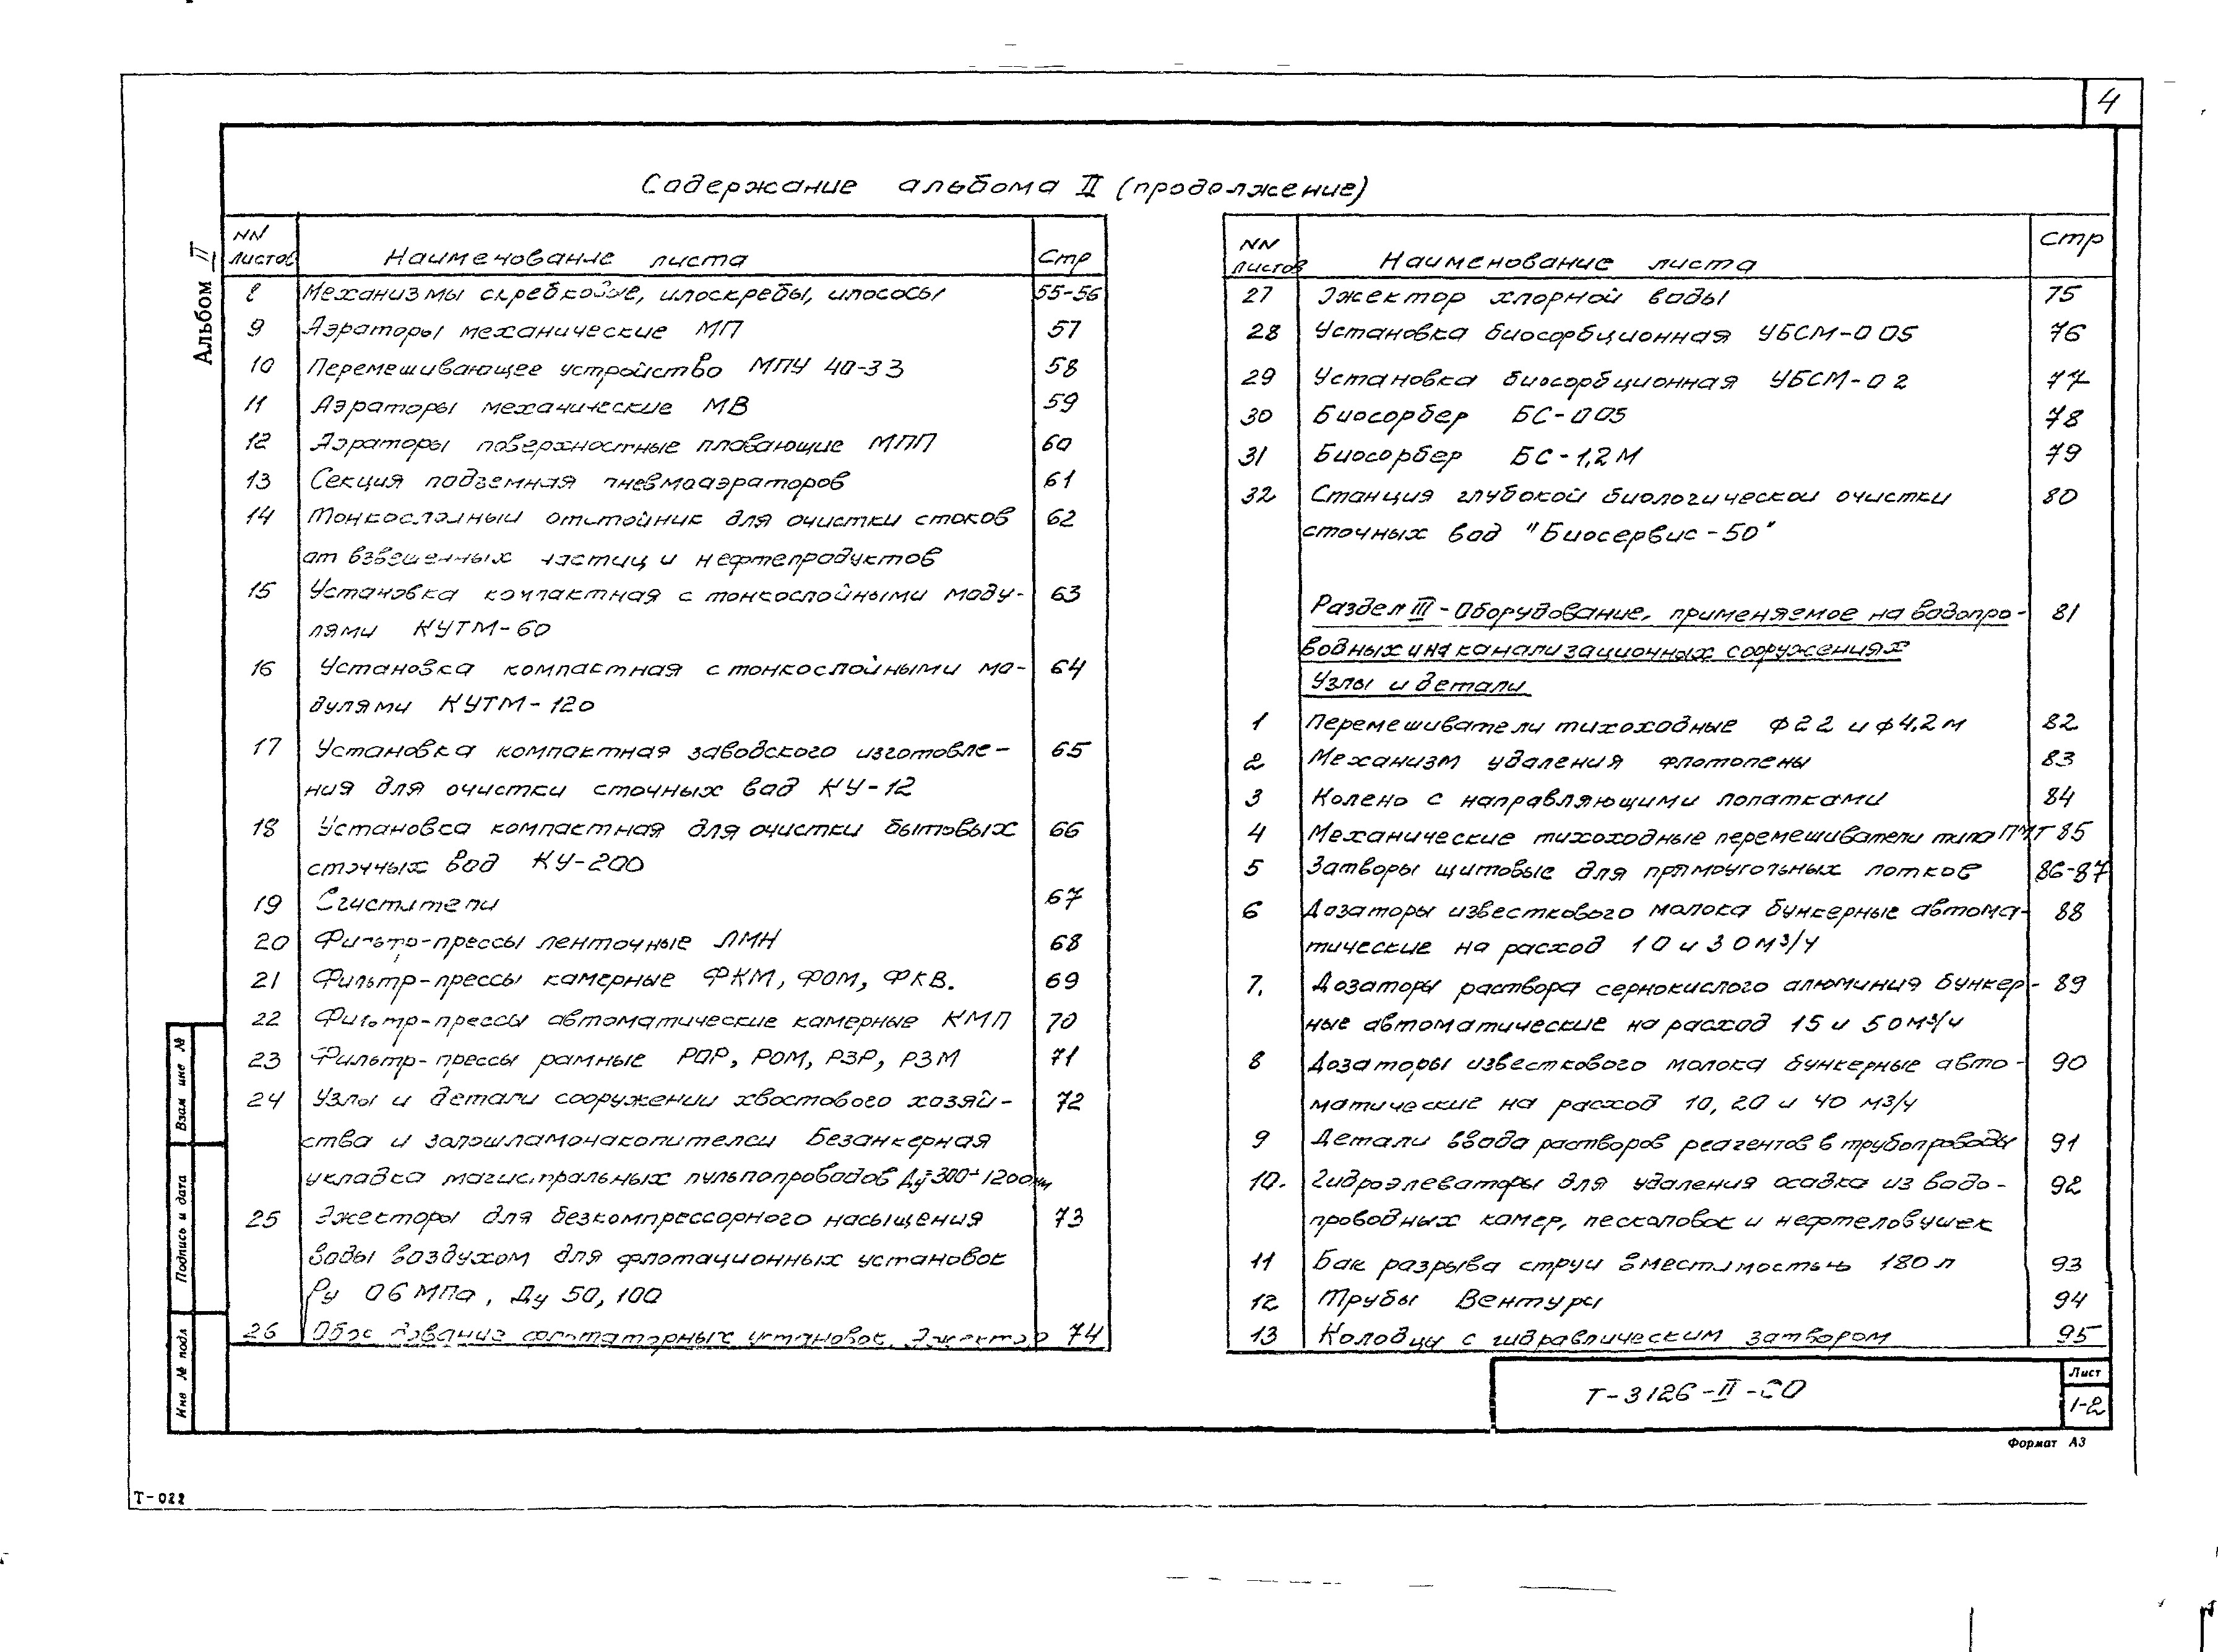 4
Содержание альбома II (продолжение)
Альбом II
NN листов Наименование листа Стр
8 Механизмы скребковые, илоскребы, илососы 55-56
9 Аэраторы механические МП 57
10 Перемешивающее устройство МПУ 40-33 58
11 Аэраторы механические МВ 59
12 Аэраторы поверхностные плавающие МПП 60
13 Секция подземная пневмоаэраторов 61
14 Тонкослойный отстойник для очистки стоков 62
от взвешенных частиц и нефтепродуктов
15 Установка компактная с тонкослойными моду- 63
лями КУТМ-60
16 Установка компактная с тонкослойными мо- 64
дулями КУТМ-120
17 Установка компактная заводского изготовле- 65
ния для очистки сточных вод КУ-12
18 Установка компактная для очистки бытовых 66
сточных вод КУ-200
19 Сгустители 67
20 Фильтр-прессы ленточные ЛМН 68
21 Фильтр-прессы камерные ФКМ, ФОМ, ФКВ. 69
22 Фильтр-прессы автоматические камерные КМП 70
23 Фильтр-прессы рамные РОР, РОМ, РЗР, РЗМ 71
24 Узлы и детали сооружений хвостового хозяй- 72
ства и золошламонакопителей Безанкерная
укладка магистральных пульпопроводов Ду 300÷1200мм
25 Эжекторы для безкомпрессорного насыщения 73
воды воздухом для флотационных установок
Ру 06 МПа, Ду 50, 100
26 установок. Эжектор 74
NN листов Наименование листа Стр
27 Эжектор хлорной воды 75
28 Установка биосорбционная УБСМ-0 05 76
29 Установка биосорбционная УБСМ-0 2 77
30 Биосорбер БС-0 05 78
31 Биосорбер БС-1,2М 79
32 Станция глубокой биологической очистки 80
сточных вод "Биосервис-50"
Раздел III - Оборудование, применяемое на водопро- 81
водных и на канализационных сооружениях
Узлы и детали
1 Перемешиватели тихоходные ф 2 2 и ф 4,2 м 82
2 Механизм удаления флотопены 83
3 Колено с направляющими лопатками 84
4 Механические тихоходные перемешиватели типа ПМТ 85
5 Затворы щитовые для прямоугольных лотков 86-87
6 Дозаторы известкового молока бункерные автома- 88
тические на расход 10 и 30м3/ч
7. Дозаторы раствора сернокислого алюминия бункер- 89
ные автоматические на расход 15 и 50м3/ч
8 Дозаторы известкового молока бункерные авто- 90
матические на расход 10, 20 и 40 м3/ч
9 Детали ввода растворов реагентов в трубопроводы 91
10. Гидроэлеваторы для удаления осадка из водо- 92
проводных камер, песколовок и нефтеловушек
11 Бак разрыва струи вместимостью 180 л 93
12 Трубы Вентури 94
13 Колодцы с гидравлическим затвором 95
Взам инв №
Подпись и дата
Инв № подл
Т-3126-II-СО
Лист
1-2
Формат А3
Т-022